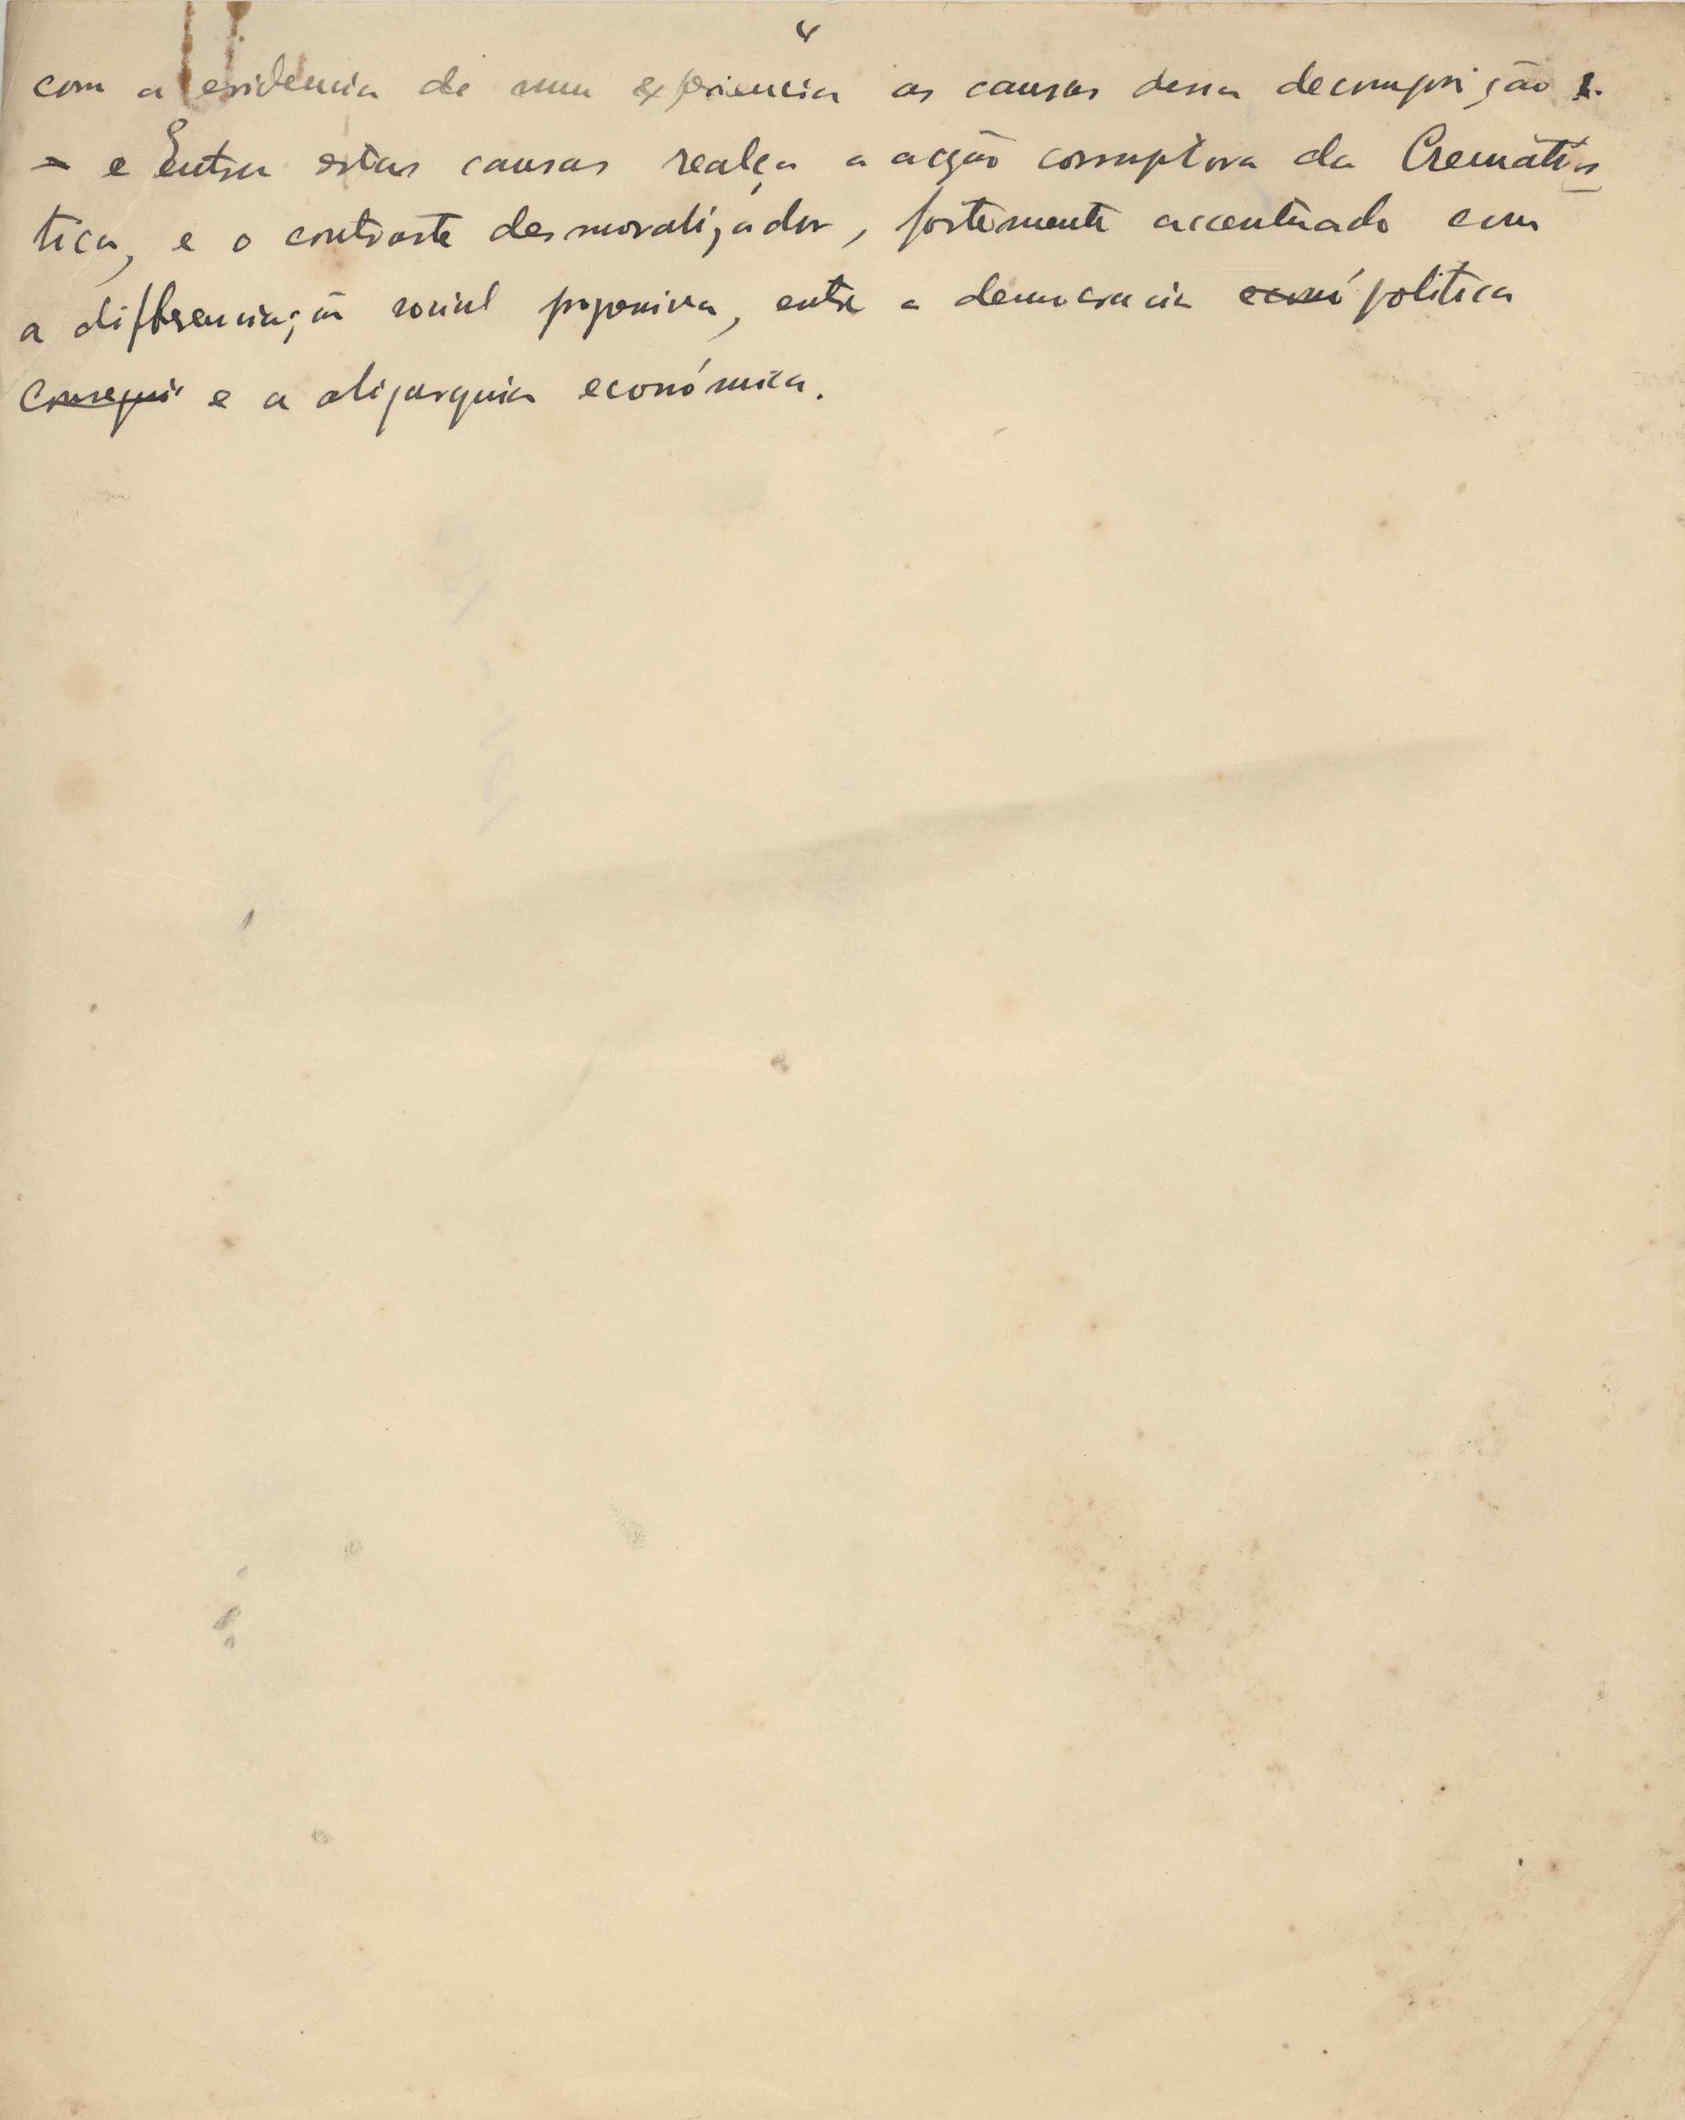 4
com a evidencia de uma experiencia as causas dessa decomposição.
– e Entre estas causas realça a acção corruptora da Crematis
tica, e o contraste desmoralizador, fortemente accentuado com
a differenciação social progressiva, entre a democracia econó politica
consegui e a oligarquia económica.